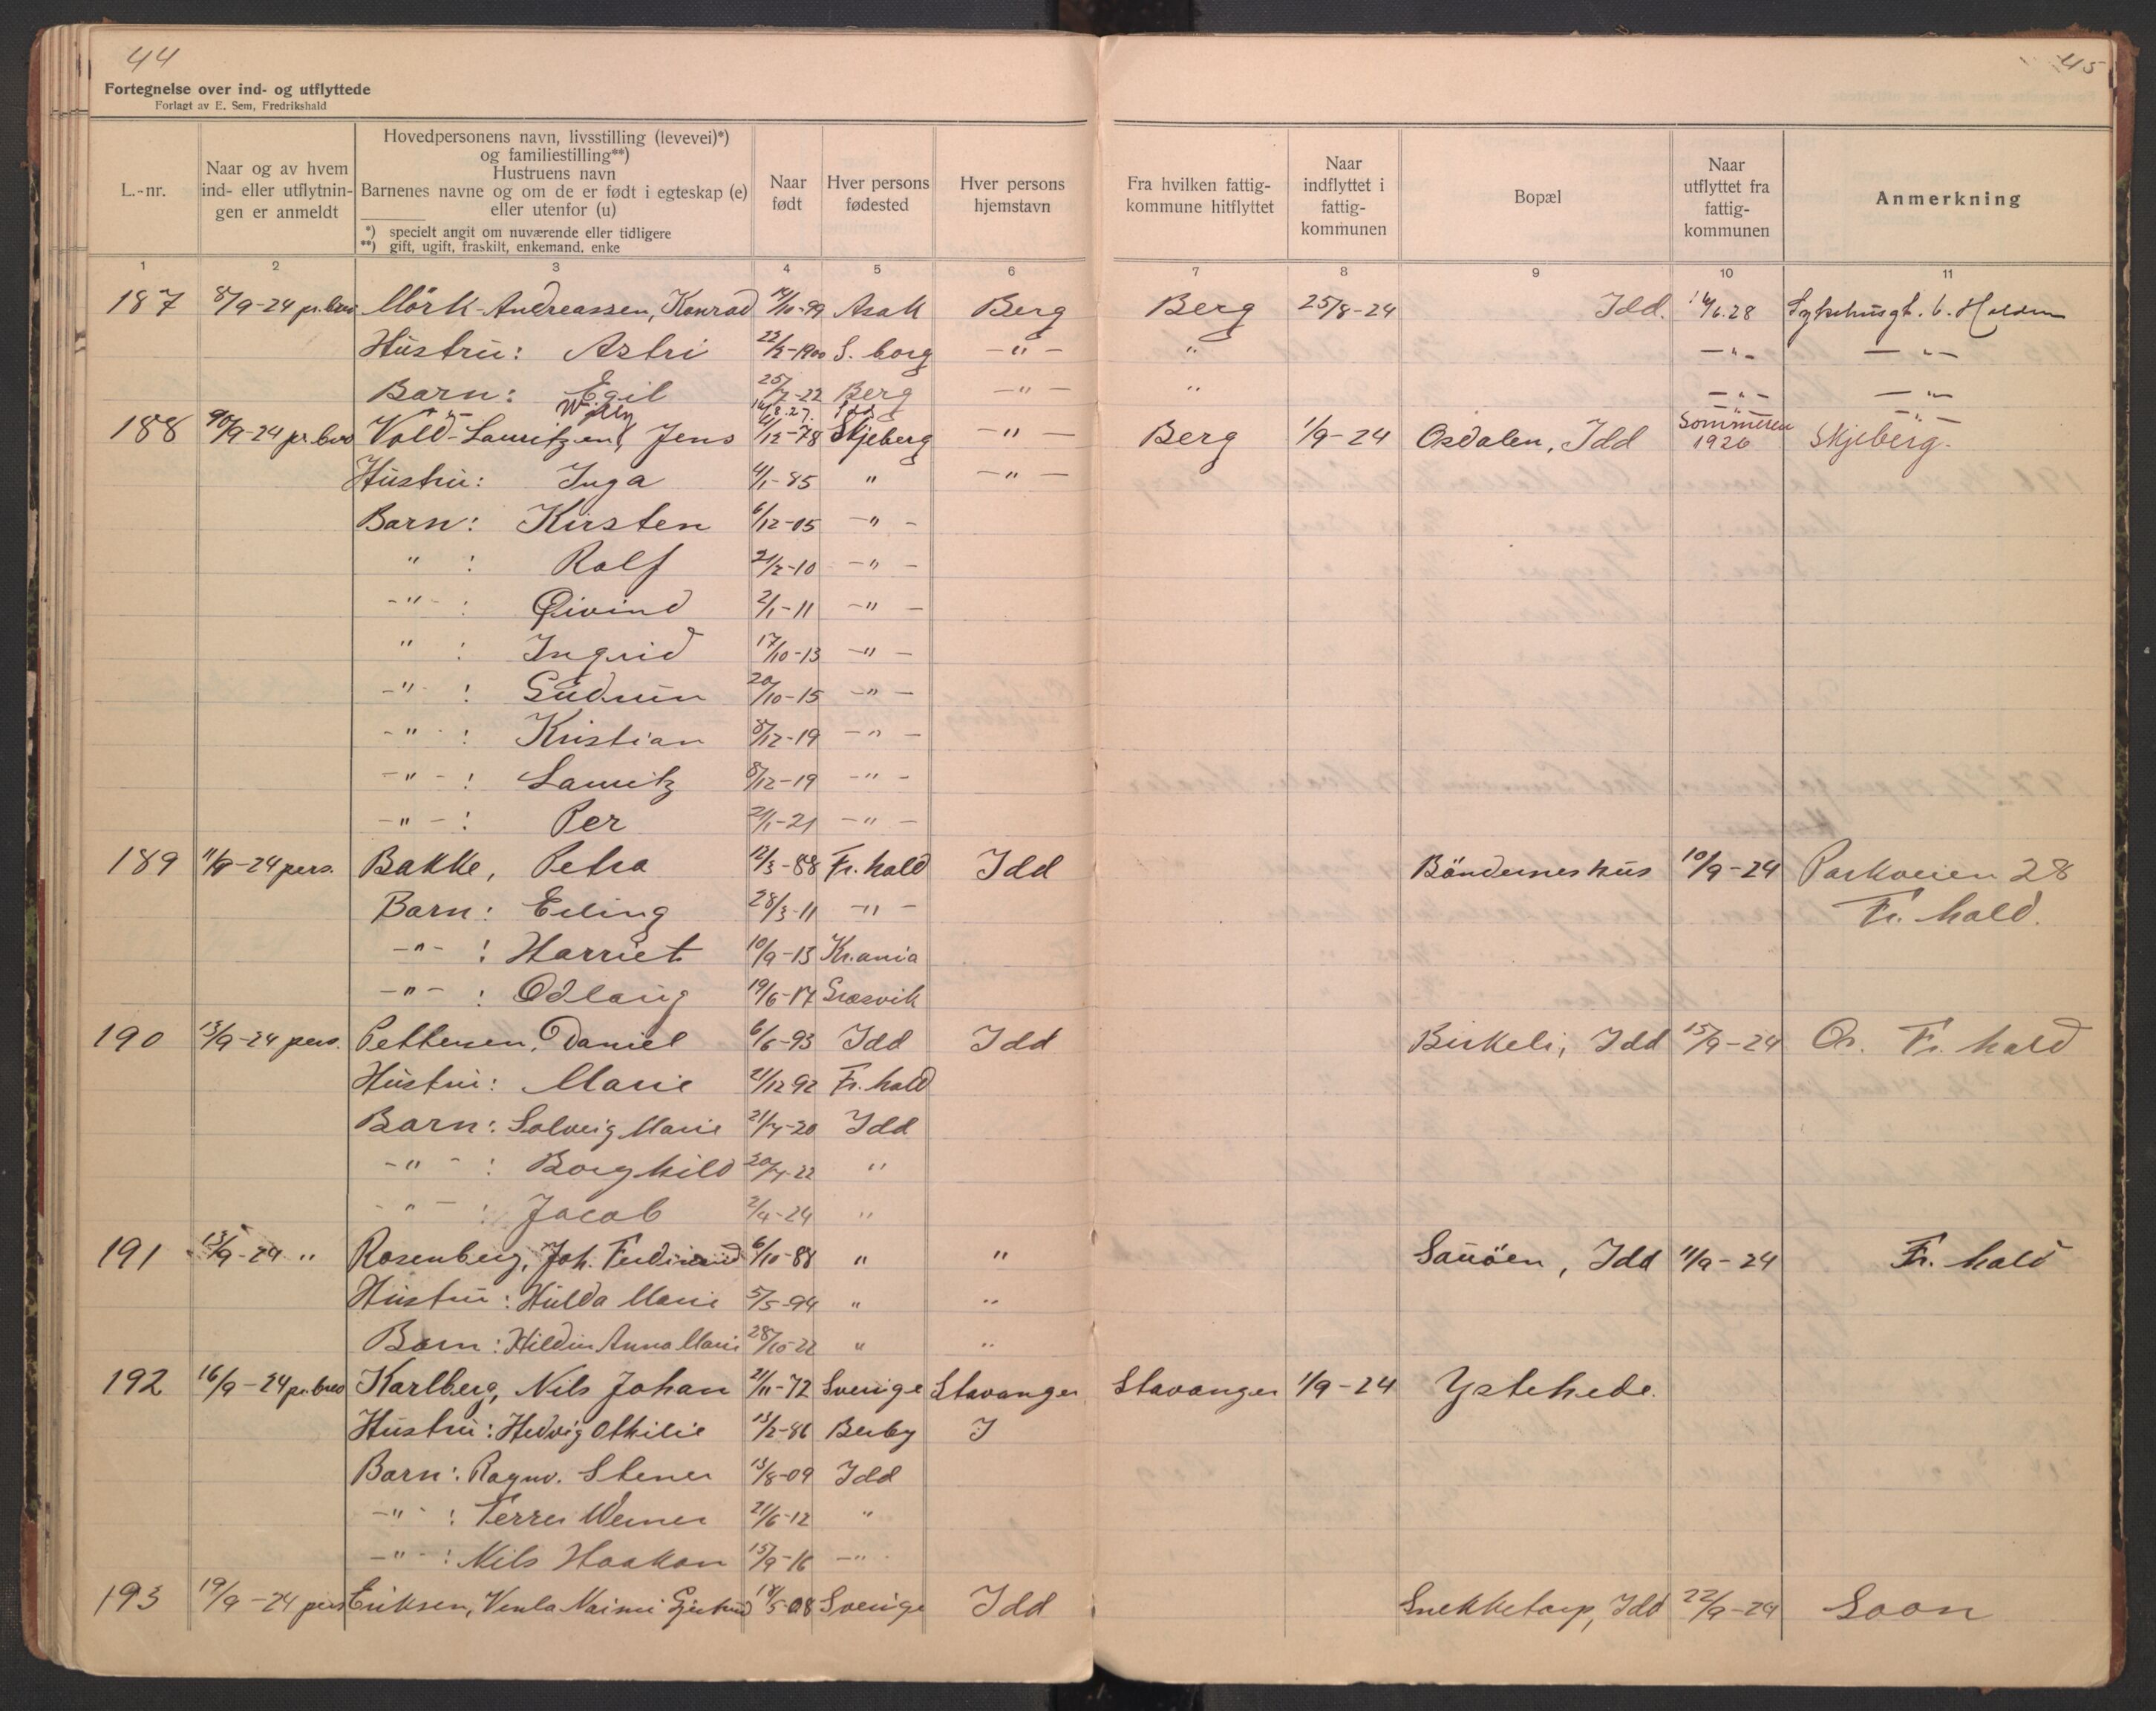 44
45
Fortegnelse over ind- og utflyttede
Forlagt av E. Sem, Fredrikshald
L.-nr.
Naar og av hvem ind- eller utflytnin-gen er anmeldt
Hovedpersonens navn, livsstilling (levevei)*)
og familiestilling**)
Hustruens navn
Barnenes navne og om de er født i egteskap (e)
eller utenfor (u)
*) specielt angit om nuværende eller tidligere
**) gift, ugift, fraskilt, enkemand, enke
Naar født
Hver persons fødested
Hver persons hjemstavn
Fra hvilken fattig-kommune hitflyttet
Naar indflyttet i fattig-kommunen
Bopæl
Naar utflyttet fra fattig-kommunen
Anmerkning
1 2 3 4 5 6 7 8 9 10 11
187 8/9-24 pr. brev Mörk-Andreassen, Konrad 14/10-99 Asak Berg Berg 25/8-24 Idd. 14/6.28 Sykehusgt. 6. Halden
Hustru: Astri 22/2-1900 S. borg -"- " -"- -"-
Barn: Egil 25/7-22 Berg -"- " -"- -"-
Willy 14/8.27. Idd -"- -"-
188 9/9-24 pr. brev Vold-Lauritzen, Jens 4/12-78 Skjeberg -"- Berg 1/9-24 Osdalen, Idd Sommeren 1926 Skjeberg.
Hustru: Inga 4/1-85 " -"-
Barn: Kirsten 6/12-05 -"-
" : Rolf 21/2-10 -"-
-"- : Øivind 2/1-11 -"-
" : Ingrid 17/10-13 -"-
-"- : Gudrun 20/10-15 -"-
-"- : Kristian 8/12-19 -"-
-"- : Lauritz 8/12-19 -"-
-"- : Per 21/1-21 -"-
189 11/9-24 pers. Bakke, Petra 12/3-88 Fr. hald Idd Bönderneshus 10/9-24 Parkveien 28
Barn: Erling 28/3-11 -"- Fr. hald.
-"- : Harriet 10/9-13 Kr.ania
-"- : Odlaug 19/6-17 Græsvik
190 13/9-24 pers. Pettersen, Daniel 6/6-93 Idd Idd Birkeli, Idd 15/9-24 Os. Fr. hald
Hustru: Marie 21/12 92 Fr. hald
Barn: Solveig Marie 21/7-20 Idd
-"- : Borghild 20/7-22 "
-"- : Jacob 2/4-24 "
191 13/9-24 " Rosenberg, Joh. Ferdinand 6/10-88 " " Sauöen, Idd 11/9-24 Fr. hald
Hustru: Hulda Marie 5/5-94 " "
Barn: Hildur Anna Marie 28/10-22 " "
192 16/9-24 pr. brev Karlberg, Nils Johan 21/11-72 Sverige Stavanger Stavanger 1/9-24 Ystehede.
Hustru: Hedvig Othilie 13/2-86 Berby I
Barn: Ragnv. Stener 13/8-09 Idd
-"- : Ferrer Werner 21/6-12 "
-"- : Nils Haakon 15/9-16 -"-
193 19/9-24 pers Eriksen, Venla Naimi Gjertrud 18/5-08 Sverige Idd Snekketorp, Idd 22/9-24 Soon